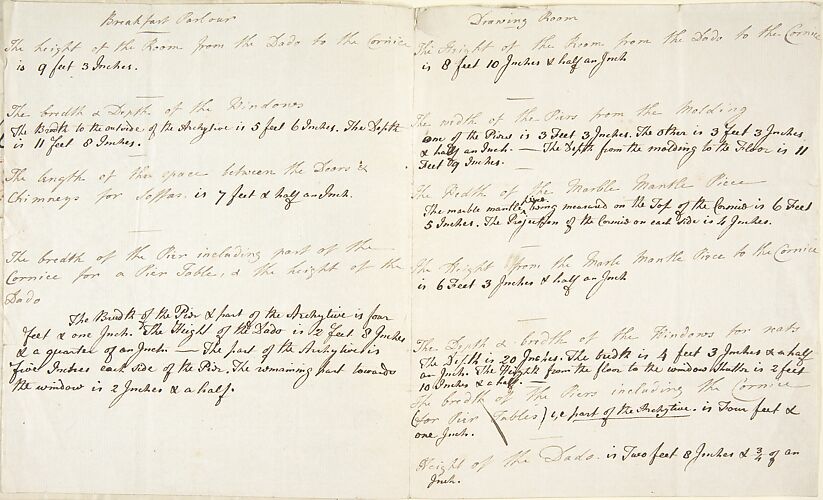 Breakfast Parlour
The height of the Room from the Dado to the Cornice
is 9 feet 3 Inches.
The bredth & Depth of the Windows
The Bredth to the outside of the Archytive is 5 feet 6 Inches. The Depth
is 11 feet 8 Inches.
The length of the space between the Doors &
Chimneys for Soffas. is 7 feet & half an Inch.
The bredth of the Pier including part of the
Cornice for a Pier Table, & the height of the
Dado
The Bredth of the Pier & part of the Archytive is four
feet & one Inch. The Height of the Dado is 2 feet 8 Inches
& a quarter of an Inch. — The part of the Archytive is
five Inches each side of the Pier. The remaining part towards
the window is 2 Inches & a half.
Drawing Room
The Height of the Room from the Dado to the Cornice
is 8 feet 10 Inches & half an Inch
The width of the Piers from the Molding
one of the Piers is 3 Feet 3 Inches. The other is 3 feet 3 Inches
& half an Inch. — The Depth from the molding to the Floor is 11
Feet 9 Inches.
The Width of the Marble Mantle Piece
The marble mantle piece being measured on the Top of the Cornice is 6 Feet
5 Inches. The Projection of the Cornice on each side is 4 Inches.
The Height from the Marle Mantle Piece to the Cornice
is 6 Feet 3 Inches & half an Inch
The Depth & bredth of the Windows for seats
The Depth is 20 Inches. The bredth is 4 feet 3 Inches & a half
an Inch. The Height from the floor to the window Shutter is 2 feet
10 Inches & a half. —
The bredth of the Piers including the Cornice
(for Pier Tables) i,e part of the Archytive. is Four feet &
one Inch.
Height of the Dado. is Two feet 8 Inches & 3/4 of an
Inch.